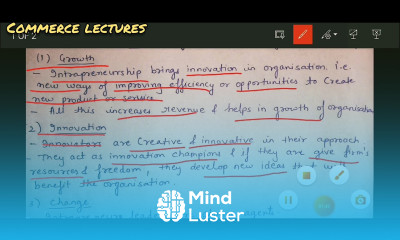 COMMERCE LECTURES
1 Of 2
(1) Growth
- Intrapreneurship brings innovation in organisation i.e.
new ways of improving efficiency or opportunities to create
new product or service
- All this increases revenue & helps in growth of organisation
2) Innovation
- Innovators are creative & innovative in their approach
- They act as innovation champions & if they are give firm's
resources & freedom, they develop new ideas that
benefit the organisation.
change
Mind
Luster